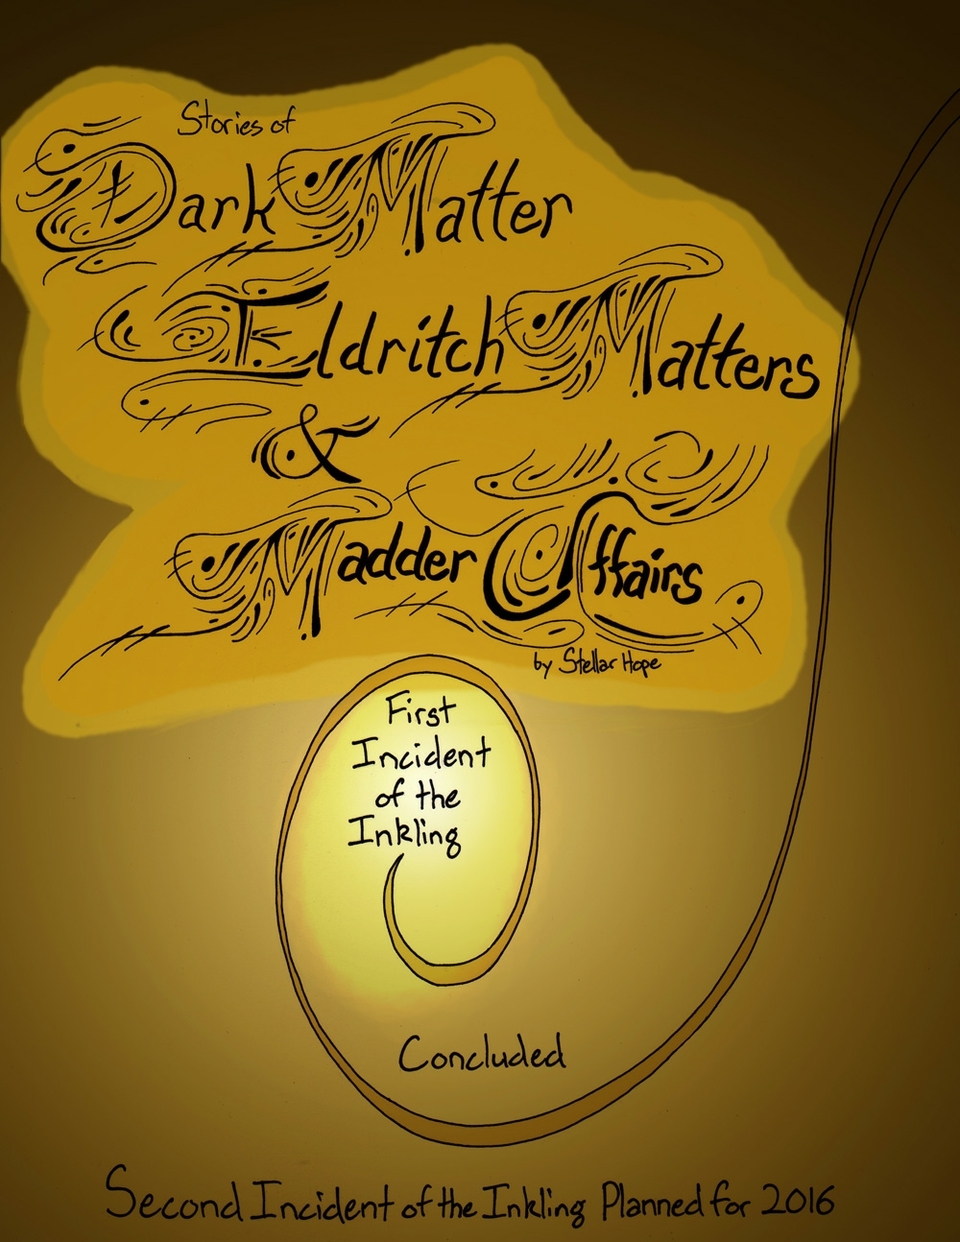 Stories of
Dark Matter
Eldritch Matters
&
Madder Affairs
by Stellar Hope
First
Incident
of the
Inkling
Concluded
Second Incident of the Inkling Planned for 2016